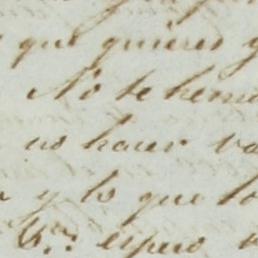 que quieres y
No te hemo
no hacer va
y lo que lo
espero